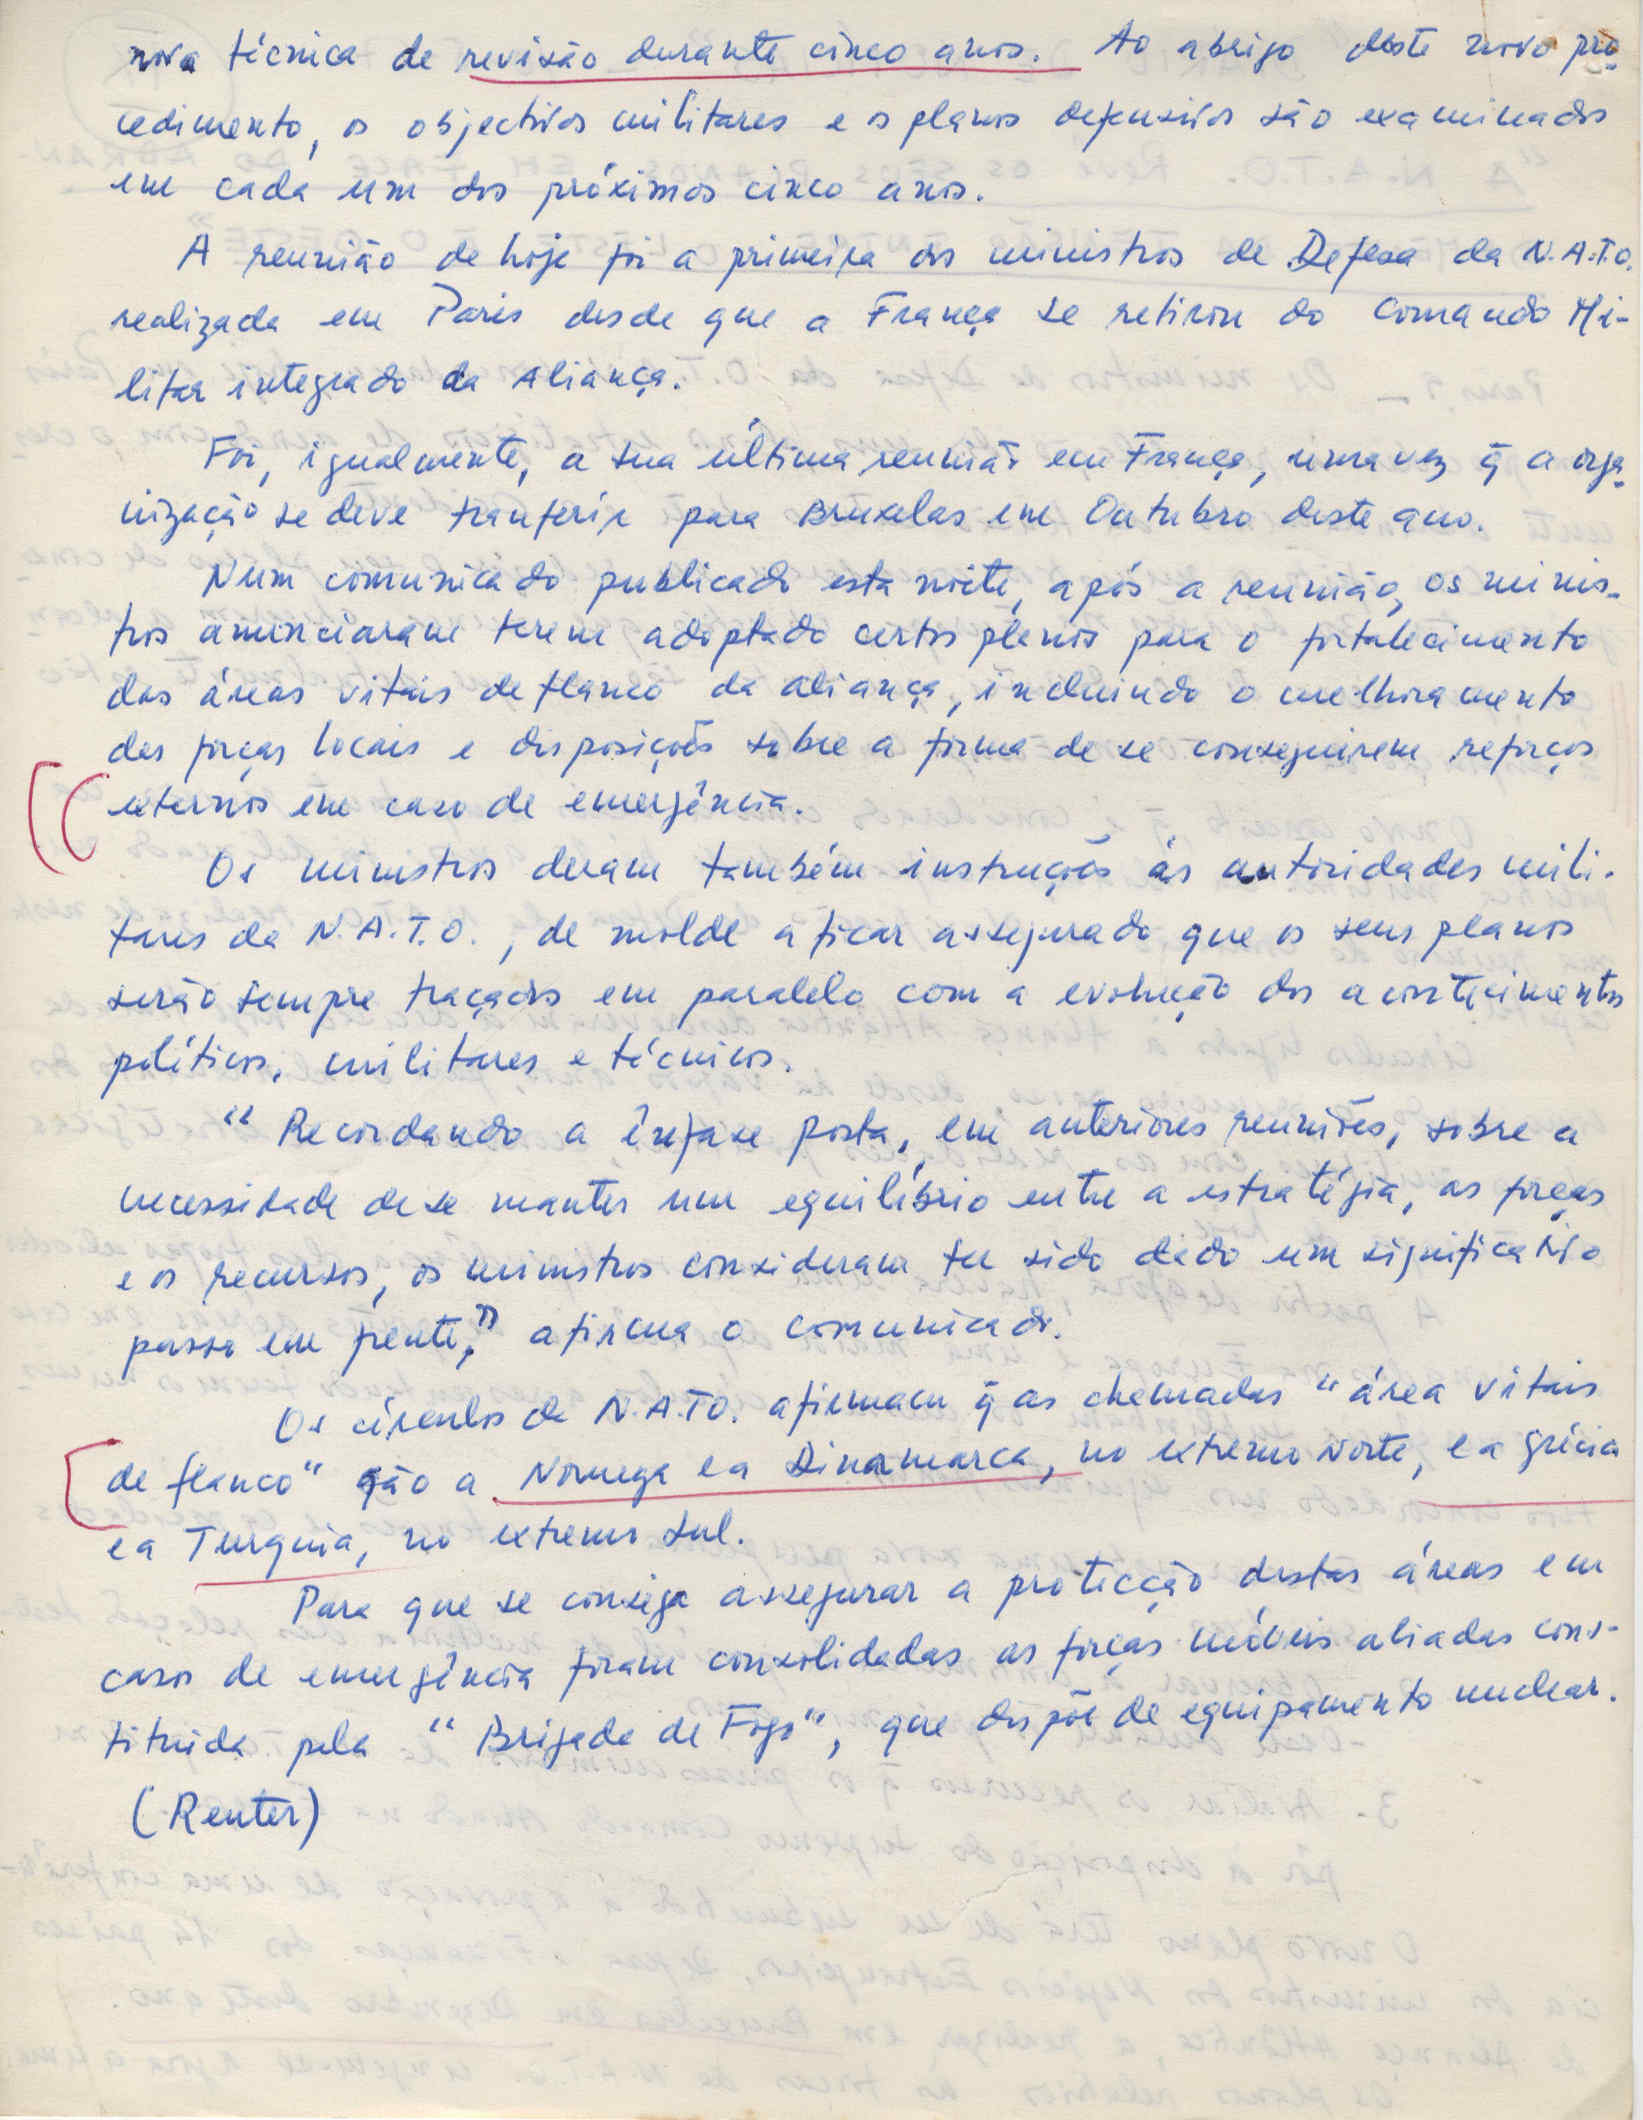 nova técnica de revisão durante cinco anos. Ao abrigo deste novo pro-
cedimento, os objectivos militares e os planos defensivos são examinados
em cada um dos próximos cinco anos.
A reunião de hoje foi a primeira dos ministros de Defesa da N.A.T.O.
realizada em Paris desde que a França se retirou do Comando Mi-
litar integrado da Aliança.
Foi, igualmente, a sua última reunião em França, uma vez q̃ a orga-
nização se deve tranferir para Bruxelas em Outubro deste ano.
Num comunicado publicado esta noite, após a reunião, os minis-
tros anunciaram terem adoptado certos planos para o fortalecimento
das áreas vitais de flanco da aliança, incluindo o melhoramento
das forças locais e disposições sobre a forma de se conseguirem reforços
externos em caso de emergência.
Os ministros deram também instruções às autoridades mili-
tares da N.A.T.O., de molde a ficar assegurado que os seus planos
serão sempre traçados em paralelo com a evolução dos acontecimentos
políticos, militares e técnicos.
“ Recordando a ênfase posta, em anteriores reuniões, sobre a
necessidade de se manter um equilíbrio entre a estratégia, as forças
e os recursos, os ministros consideram ter sido dado um significativo
passo em frente,” afirma o comunicado.
Os círculos da N.A.T.O. afirmam q̃ as chamadas “área vitais
de flanco“ são a Noruega e a Dinamarca, no extremo Norte, e a Grécia
e a Turquia, no extremo sul.
Para que se consiga assegurar a protecção destas áreas em
caso de emergência foram consolidadas as forças móveis aliadas cons-
tituída pela “ Brigada de Fogo“, que dispõe de equipamento nuclear.
(Reuter)